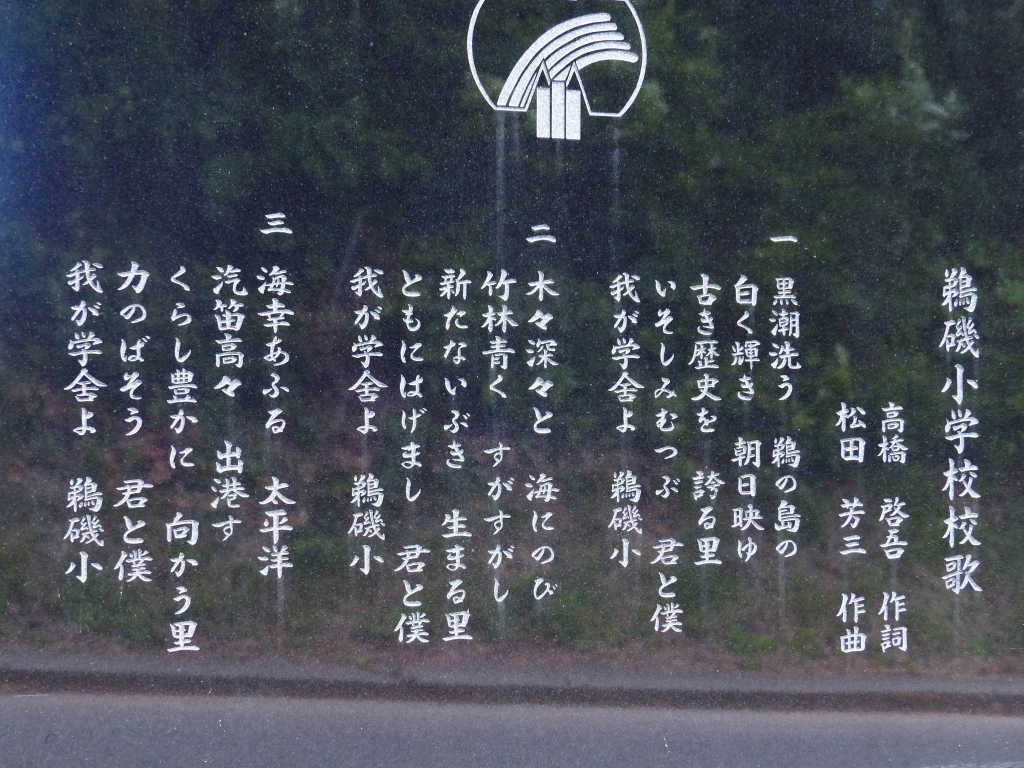 鵜磯小学校校歌
高橋 啓吾 作詞
松田 芳三 作曲
一 黒潮洗う 鵜の島の
白く輝き 朝日映ゆ
古き歴史を 誇る里
いそしみむつぶ 君と僕
我が学舎よ 鵜磯小
二 木々深々と 海にのび
竹林青く すがすがし
新たないぶき 生まる里
ともにはげまし 君と僕
我が学舎よ 鵜磯小
三 海幸あふる 太平洋
汽笛高々 出港す
くらし豊かに 向かう里
力のばそう 君と僕
我が学舎よ 鵜磯小